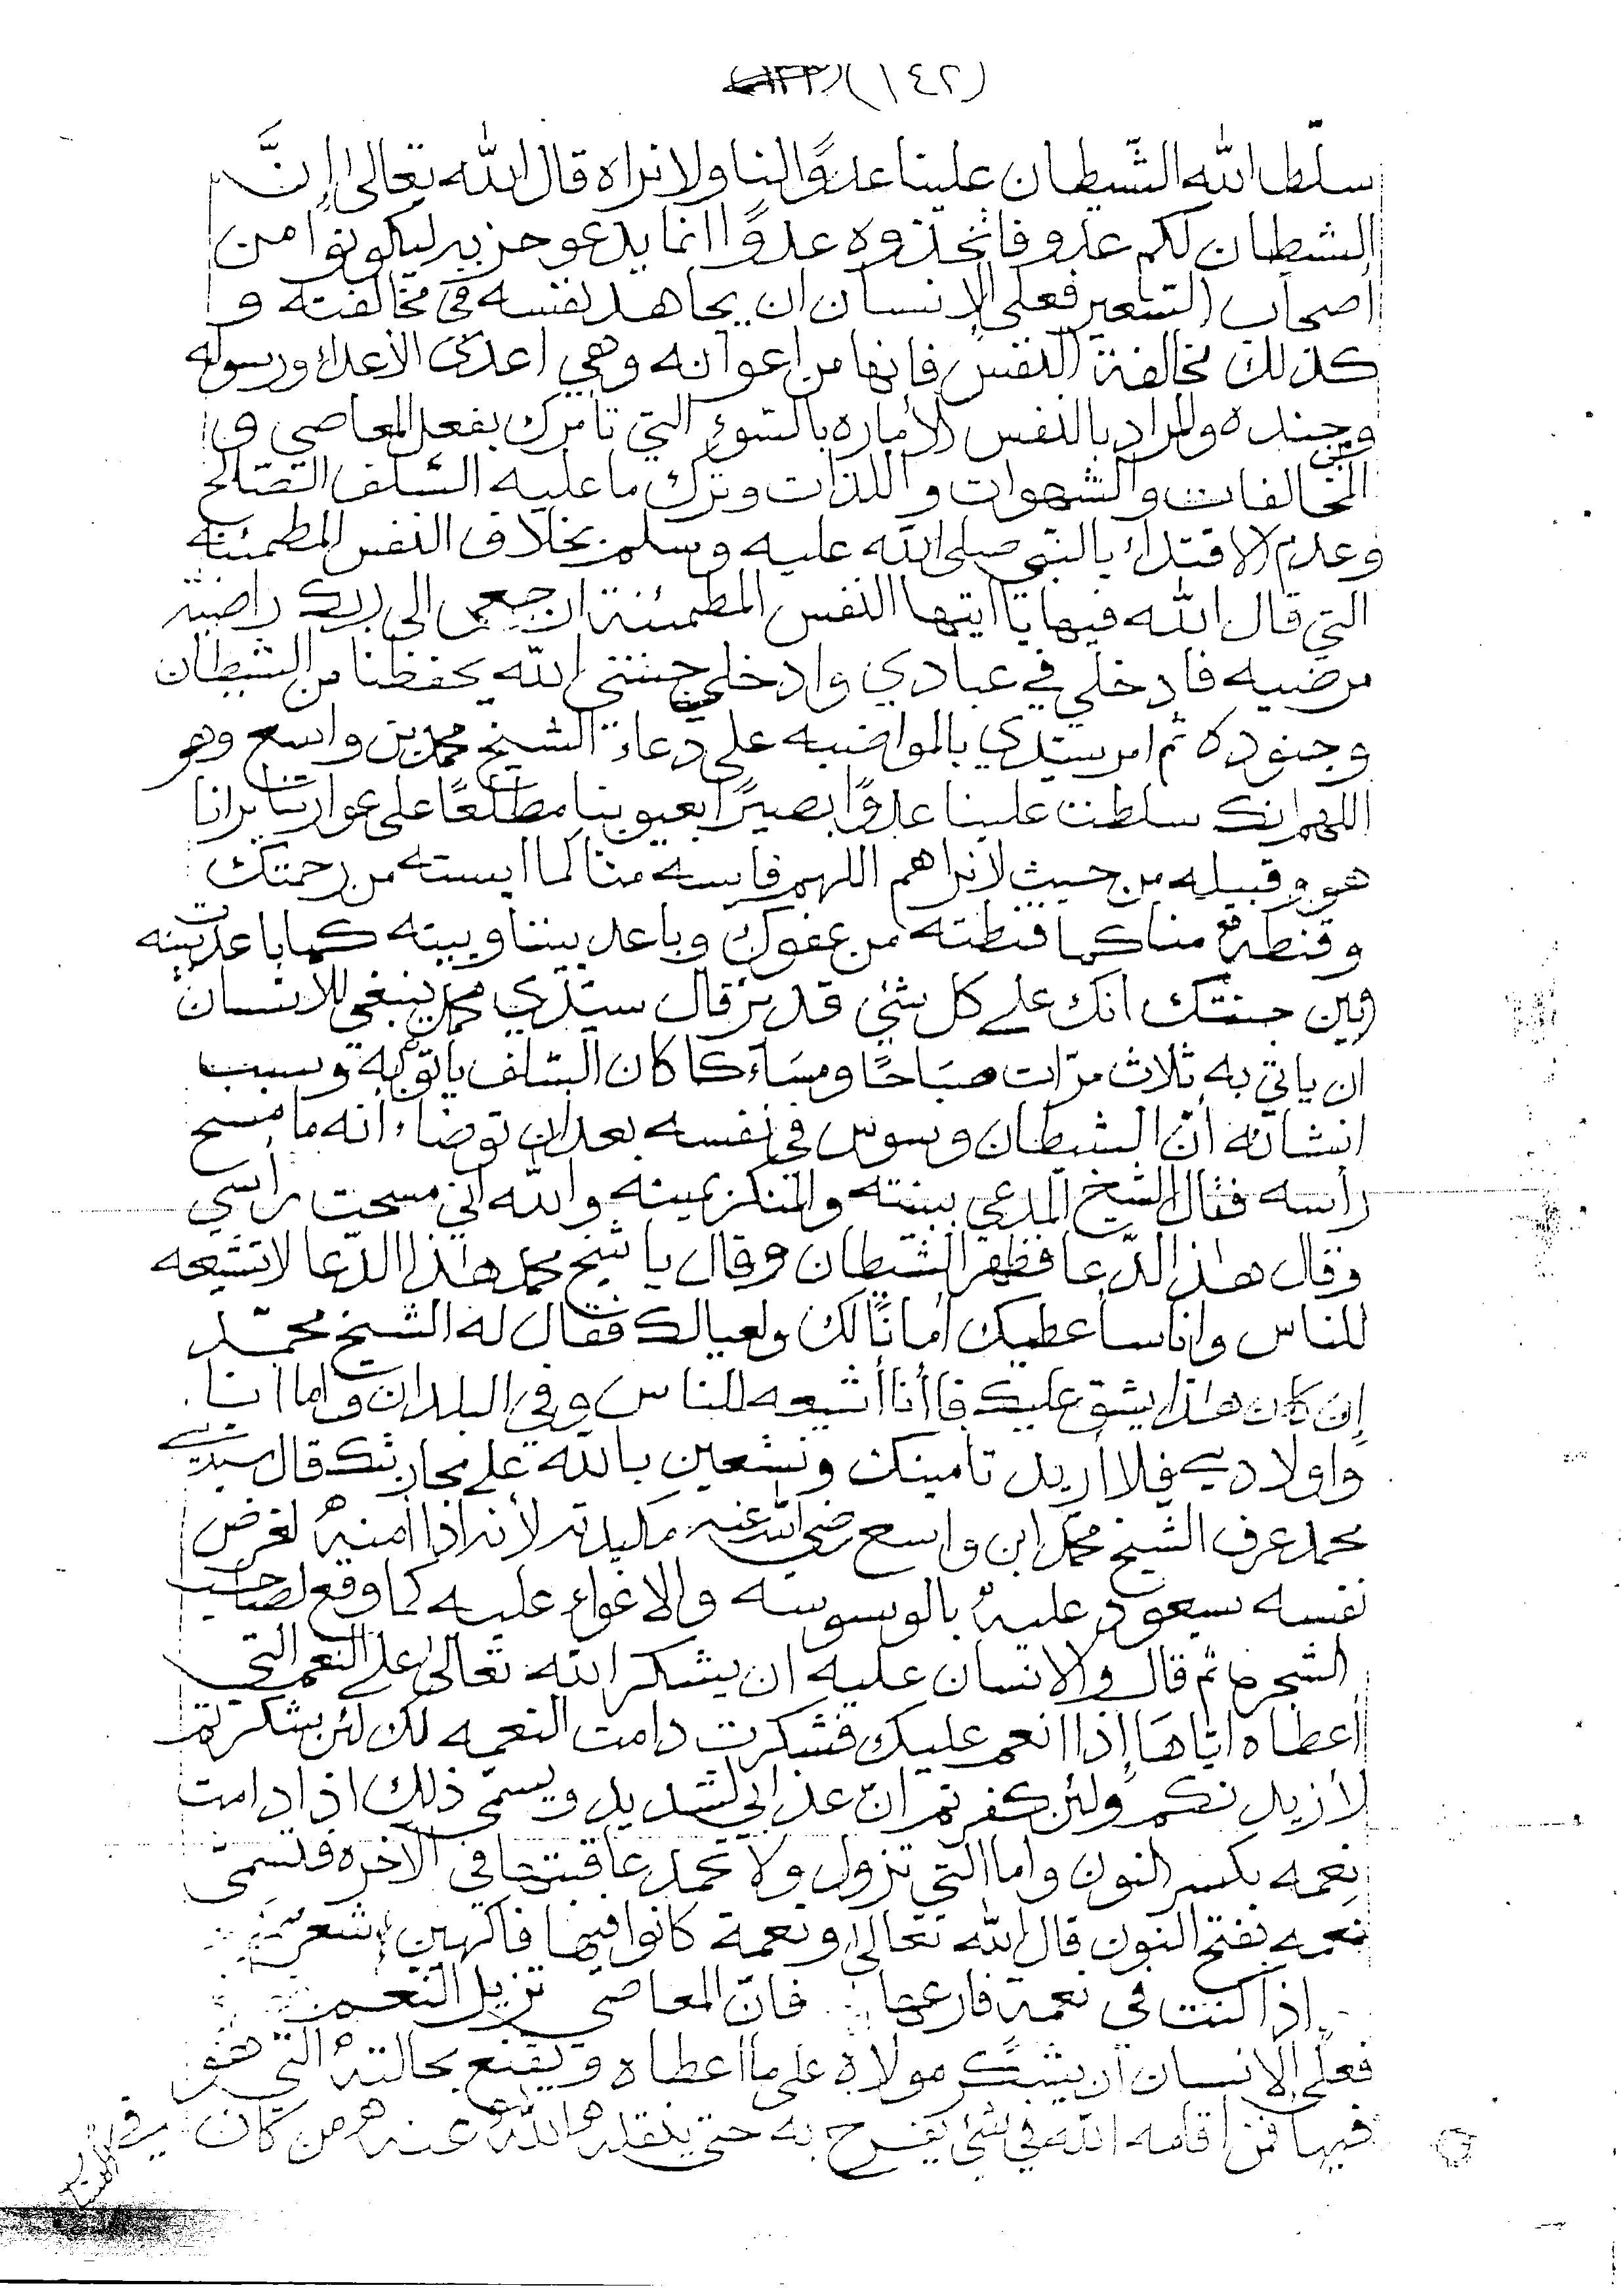 (١٤٢)
سلّط الله الشّيطان علينا عدوًّا لنا ولا نراه قال الله تعالى إنَّ
الشطان لكم عدو فاتخذوه عدوًّا انما يدعو حزبه ليكونوا من
أصحاب السّعير فعلى الإنسان ان يجاهد نفسه في مخالفته و
كذلك مخالفة النفس فانها من اعوانه وهي اعدى الأعداء ورسوله
وجنده والمراد بالنفس الأماره بالسّوء التي تأمرك بفعل المعاصي و
المخالفات والشهوات واللذات وترك ما عليه السّلف الصّالح
وعدم الاقتداء بالنبي صلى الله عليه وسلم بخلاف النفس المطمئنه
التي قال الله فيها يا ايتها النفس المطمئنة ارجعي الى ربك راضية
مرضيه فادخلي في عبادي وادخلي جنتي الله يحفظنا من الشيطان
وجنوده ثم امر سيّدي بالمواضبه على دعاء الشيخ محمد بن واسع وهو
اللهم انك سلطت علينا عدوًّا بصيرًا بعيوبنا مطّلعًا على عوارتنا يرانا
هو وقبيله من حيث لا نراهم اللهم فايسه منا كما ايسته من رحمتك
وقنطه منا كما قنطته من عفوك وباعد بيننا وبينه كما باعدت بينه
وبين جنتك انك على كل شئ قدير قال سيّدي محمد ينبغي للانسان
ان ياتي به ثلاث مرّات صباحًا ومساءً كما كان السّلف ياتو به وسبب
انشائه أنّ الشيطان وسوس في نفسه بعد ان توضاء أنه ما مسح
رأسه فقال الشيخ المدعي ببينته والمنكر يمينه والله اني مسحت رأسي
وقال هذا الدّعا فظهر الشيطان وقال يا شيخ محمد هذا الدّعا لا تشيعه
للناس وانا سأعطيك أمانًا لك ولعيالك فقال له الشيخ محمّد
إن كان هذا يشق عليك فأنا أشيعه للناس وفي البلدان واما انا
واولادي فلا أريد تامينك ونستعين بالله على محاربتك قال سيدي
محمد عرف الشيخ محمد ابن واسع رضي الله عنه مكيدته لأنه اذا أمنه لغرض
نفسه سيعود عليه بالوسوسه والاغواء عليه كما وقع لصاحب
الشجره ثم قال والانسان عليه ان يشكر الله تعالى على النعم التي
أعطاه ايّاها إذا انعم عليك فشكرت دامت النعمه لك لئن شكرتم
لأزيدنكم ولئن كفرتم انّ عذابي لشديد ويسمّى ذلك اذا دامت
نِعمه بكسر النون واما التي تزول ولا تحمد عاقبتها في الآخره فتسمّى
نَعمه بفتح النون قال الله تعالى ونعمة كانوا فيها فاكهين شعر
إذا كنت في نعمة فارعها فانّ المعاصي تزيل النعم
فعلى الإنسان أن يشكر مولاه على ما اعطاه ويقنع بحالته التي هو
فيها فمن اقامه الله في شئ يفرح به حتى ينقله الله عنه من كان